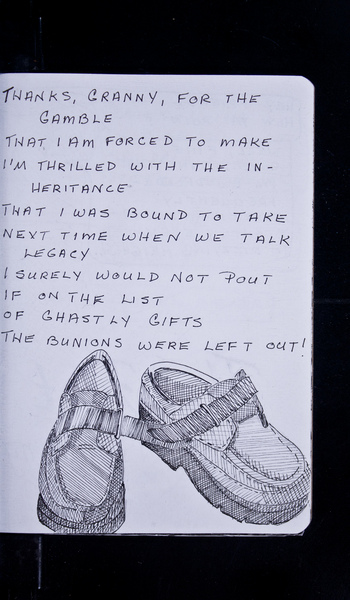 THANKS, GRANNY, FOR THE
GAMBLE
THAT I AM FORCED TO MAKE
I'M THRILLED WITH THE IN-
HERITANCE
THAT I WAS BOUND TO TAKE
NEXT TIME WHEN WE TALK
LEGACY
I SURELY WOULD NOT POUT
IF ON THE LIST
OF GHASTLY GIFTS
THE BUNIONS WERE LEFT OUT!